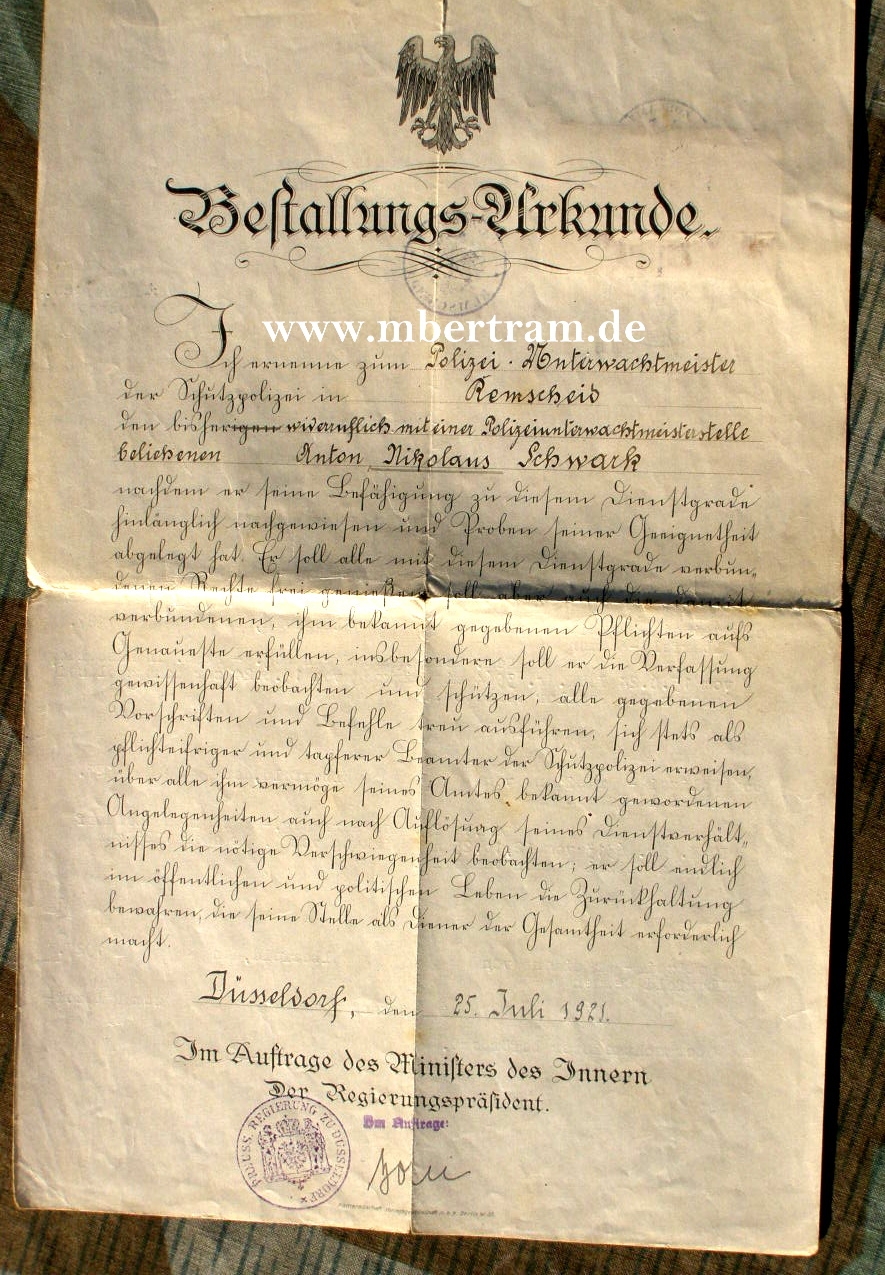 Bestallungs-Urkunde.
www.mbertram.de
Ich ernenne zum Polizei-Unterwachtmeister
der Schutzpolizei in Remscheid
den bisherigen widerruflich mit einer Polizeiunterwachtmeisterstelle
beliehenen Anton Nikolaus Schwark
nachdem er seine Befähigung zu diesem Dienstgrade
hinlänglich nachgewiesen und Proben seiner Geeignetheit
abgelegt hat. Er soll alle mit diesem Dienstgrade verbun-
denen Rechte frei genießen, soll aber auch die damit
verbundenen, ihm bekannt gegebenen Pflichten aufs
Genaueste erfüllen, insbesondere soll er die Verfassung
gewissenhaft beobachten und schützen, alle gegebenen
Vorschriften und Befehle treu ausführen, sich stets als
pflichteifriger und tapferer Beamter der Schutzpolizei erweisen,
über alle ihm vermöge seines Amtes bekannt gewordenen
Angelegenheiten auch nach Auflösung seines Dienstverhält-
nisses die nötige Verschwiegenheit beobachten; er soll endlich
im öffentlichen und politischen Leben die Zurückhaltung
bewahren, die seine Stelle als Diener der Gesamtheit erforderlich
macht.
Düsseldorf, den 25. Juli 1921.
Im Auftrage des Ministers des Innern
Der Regierungspräsident.
Im Auftrage:
PREUSS. REGIERUNG ZU DÜSSELDORF